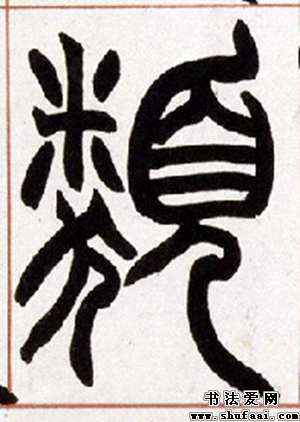 類
书法爱网
www.shufaai.com